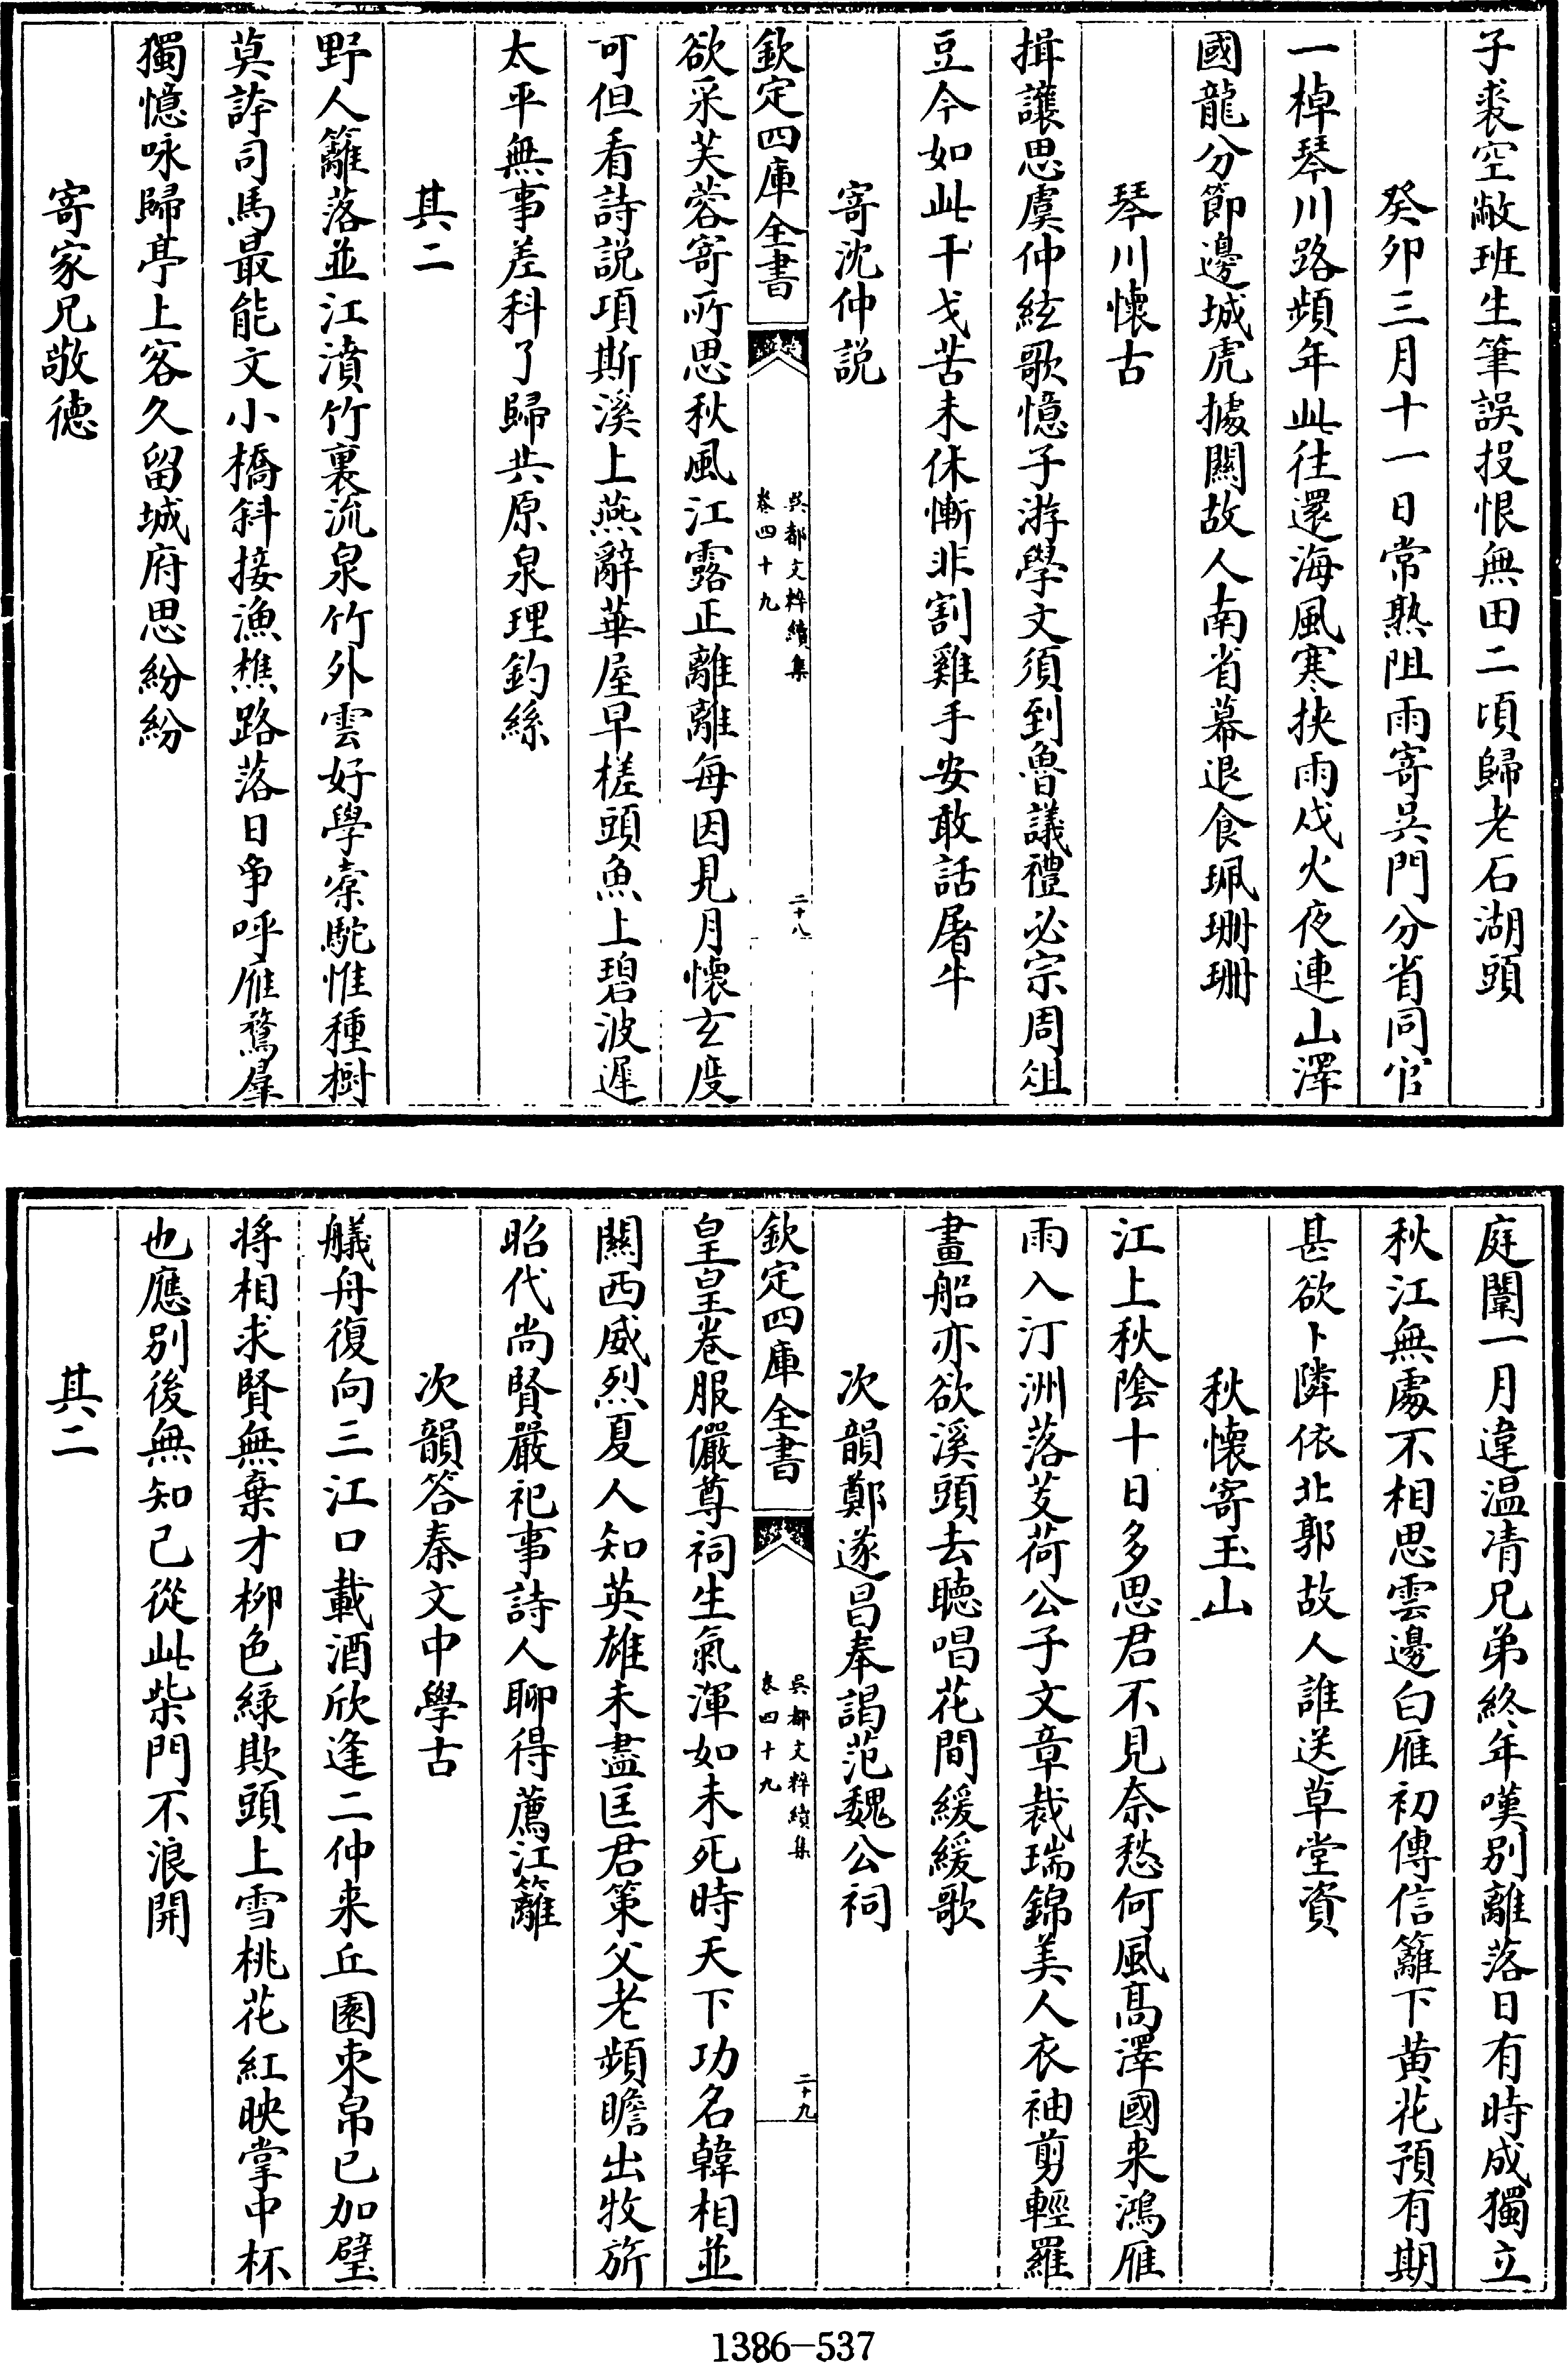 子裘空敝班生筆誤投恨無田二頃歸老石湖頭
癸卯三月十一日常熟阻雨寄吳門分省同官
一棹琴川路頻年此往還海風寒挾雨戍火夜連山澤
國龍分節邊城虎據關故人南省幕退食珮珊珊
琴川懷古
揖讓思虞仲絃歌憶子游學文須到魯議禮必宗周俎
豆今如此干戈苦未休慚非割雞手安敢話屠牛
寄沈仲説
欽定四庫全書
吳都文粹續集
卷四十九
二十八
欲采芙蓉寄所思秋風江露正離離每因見月懷玄度
可但看詩説項斯溪上燕辭華屋早槎頭魚上碧波遲
太平無事差科了歸共原泉理釣絲
其二
野人籬落並江濆竹裏流泉竹外雲好學槖駝惟種樹
莫誇司馬最能文小橋斜接漁樵路落日争呼雁鶩羣
獨憶咏歸亭上客久留城府思紛紛
寄家兄敬徳
庭闈一月違温凊兄弟終年嘆别離落日有時成獨立
秋江無處不相思雲邊白雁初傳信籬下黄花預有期
甚欲卜隣依北郭故人誰送草堂資
秋懷寄玉山
江上秋隂十日多思君不見奈愁何風髙澤國来鴻雁
雨入汀洲落芰荷公子文章裁瑞錦美人衣袖剪輕羅
畫船亦欲溪頭去聽唱花間緩緩歌
次韻鄭遂昌奉謁范魏公祠
欽定四庫全書
吳都文粹續集
卷四十九
二十九
皇皇卷服儼尊祠生氣渾如未死時天下功名韓相並
關西威烈夏人知英雄未盡匡君策父老頻瞻出牧旂
昭代尚賢嚴祀事詩人聊得薦江籬
次韻答秦文中學古
艤舟復向三江口載酒欣逢二仲来丘園束帛已加璧
將相求賢無棄才柳色緑欺頭上雪桃花紅映掌中杯
也應别後無知己從此柴門不浪開
其二
1386-537